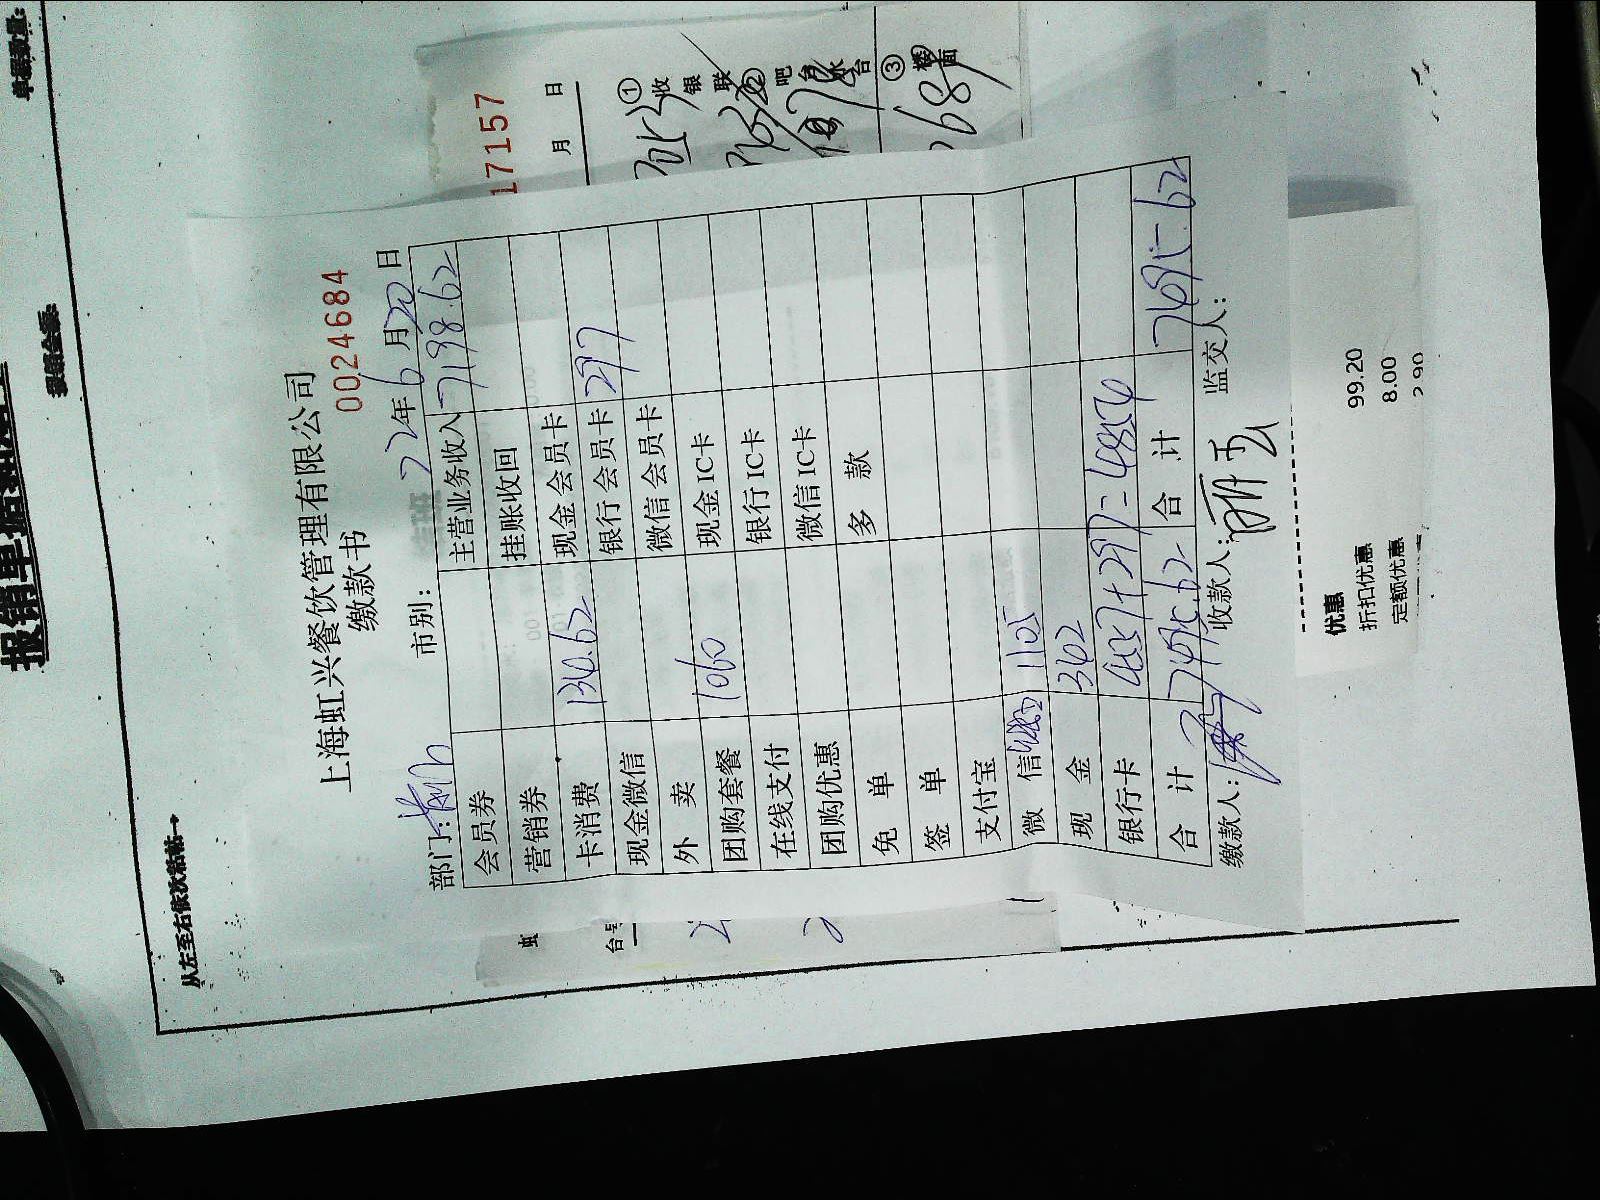 报销单据粘贴单
单据数量:
报销金额:
从左至右依次粘帖→
17157
月 日
①收银联
②吧台水台
③楼面
768
上海虹兴餐饮管理有限公司
缴款书
0024684
部门: 市别: 22年6月20日
会员券 主营业务收入 7198.62
营销券 挂账收回
卡消费 134.62 现金会员卡
现金微信 银行会员卡 297
外卖 微信会员卡
团购套餐 1060 现金IC卡
在线支付 银行IC卡
团购优惠 微信IC卡
免单 多款
签单
支付宝
微信 1105
现金 342
银行卡 4557+297=4854
合计 7495.62 合计 7495.62
缴款人: 收款人: 监交人:
虹
台号
优惠
折扣优惠 99.20
定额优惠 8.00
2.90